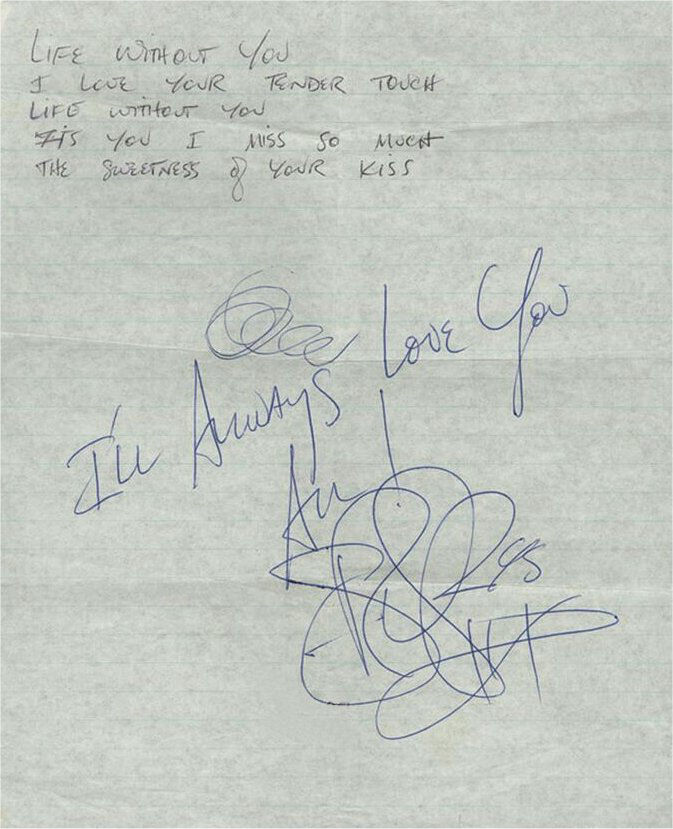 LIFE WITHOUT YOU
I LOVE YOUR TENDER TOUCH
LIFE WITHOUT YOU
ITS YOU I MISS SO MUCH
THE SWEETNESS of YOUR KISS
LOVE YOU
I'll ALWAYS
All